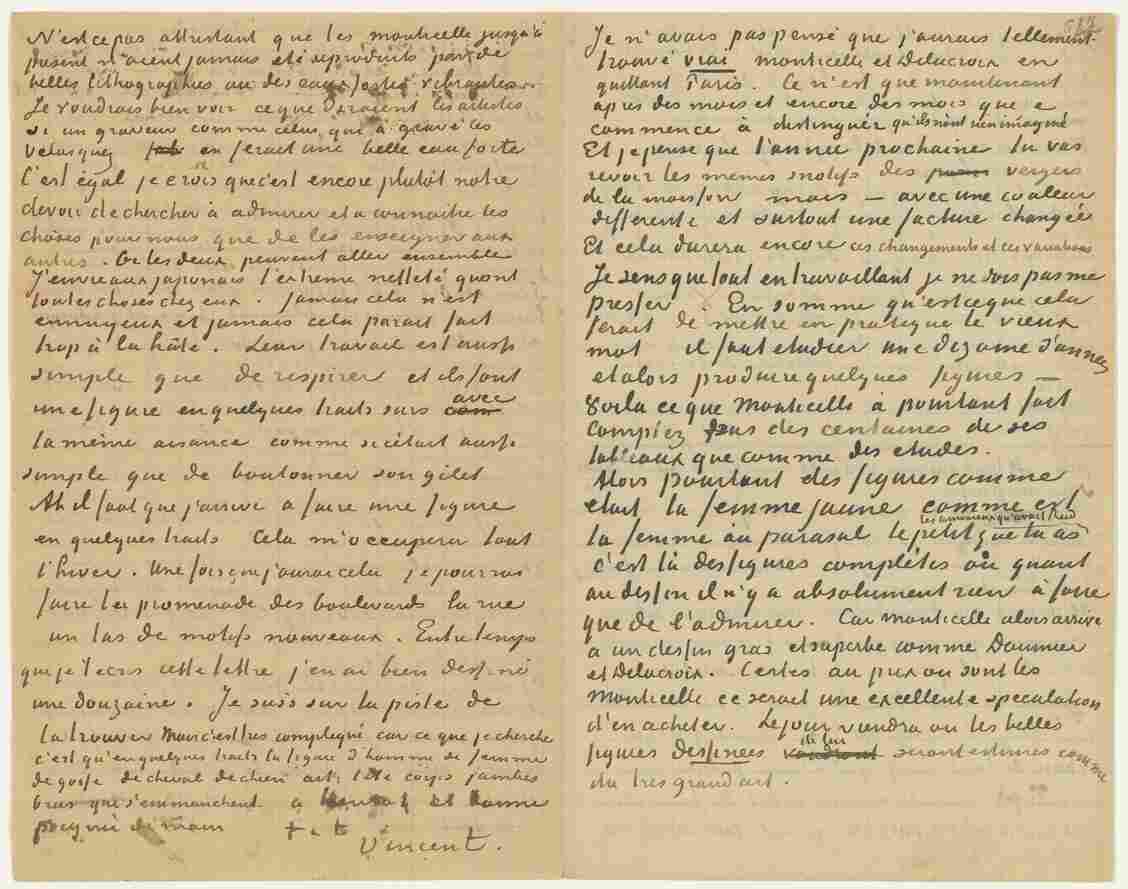 N'est ce pas attristant que les monticelli jusqu'à
présent n'aient jamais eté reproduits par de
belles lithographies ou des eaux fortes vibrantes.
Je voudrais bien voir ce que diraient les artistes
si un graveur comme celui qui à gravé les
Velasquez en ferait une belle eau forte
C'est égal je crois que c'est encore plutôt notre
devoir de chercher à admirer et a connaitre les
choses pour nous que de les enseigner aux
autres. Or les deux peuvent aller ensemble
J'envie aux japonais l'extreme netteté qu'ont
toutes choses chez eux. Jamais cela n'est
ennuyeux et jamais cela parait fait
trop à la hâte. Leur travail est aussi
simple que de respirer et ils font
une figure en quelques traits surs avec
la même aisance comme si c'était aussi
simple que de boutonner son gilet
Ah il faut que j'arrive a faire une figure
en quelques traits Cela m'occupera tout
l'hiver. Une fois que j'aurai cela je pourrai
faire la promenade des boulevards la rue
un tas de motifs nouveaux. Entre temps
que je t'ecris cette lettre j'en ai bien dessiné
une douzaine. Je suis sur la piste de
la trouver mais c'est tres compliqué car ce que je cherche
c'est qu'en quelques traits la figure d'homme de femme
de gosse de cheval de chien ait tete corps jambes
bras qui s'emmanchent. a bientot et bonne
poignée de main t. à t.
Vincent.
Je n'avais pas pensé que j'aurais tellement
trouvé vrai monticelli et Delacroix en
quittant Paris. Ce n'est que maintenant
apres des mois et encore des mois que je
commence à distinguer qu'ils n'ont rien imaginé
Et je pense que l'année prochaine tu vas
revoir les memes motifs des vergers
de la moisson mais — avec une couleur
differente et surtout une facture changée
Et cela durera encore ces changements et ces variations
Je sens que tout en travaillant je ne dois pas me
presser. En somme qu'est ce que cela
ferait de mettre en pratique le vieux
mot il faut etudier une dizaine d'années
et alors produire quelques figures —
Voila ce que Monticelli à pourtant fait
Comptez des centaines de ses
tableaux que comme des etudes.
Alors pourtant des figures comme
etait la femme jaune comme est
la femme au parasol le petit que tu as
les amoureux qu'avait Reid
c'est là des figures complètes où quant
au dessin il n'y a absolument rien à faire
que de l'admirer. Car monticelli alors arrive
a un dessin gras et superbe comme Daumier
et Delacroix. Certes au prix ou sont les
Monticelli ce serait une excellente speculation
d'en acheter. Le jour viendra ou les belles
figures dessinées de lui seront estimées comme
du tres grand art.